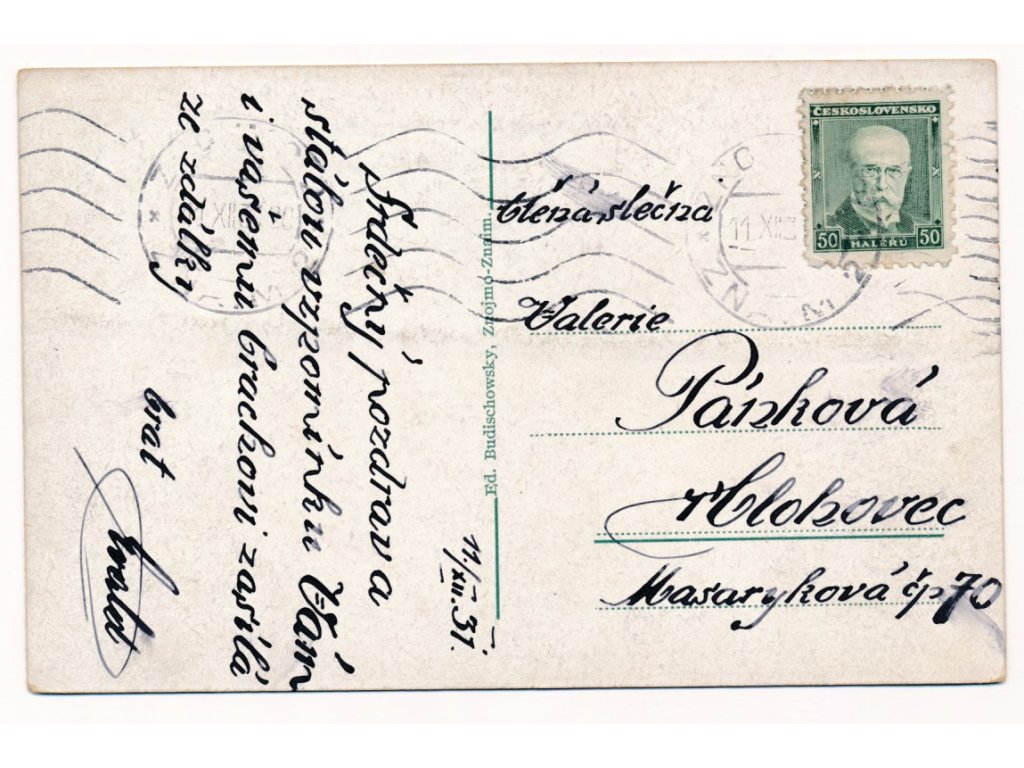 Srdečný pozdrav a
stálou vzpomínku Vám
i vašemu brackovi zasílá
ze zdálky
brat
11/XII.31.
Ed. Budischowsky, Znojmo-Znaim.
ČESKOSLOVENSKO
50 HALÉRŮ 50
11.XII.3
ZNOJMO
Ctěná slečna
Valerie
Pánková
Hlohovec
Masaryková čp 70